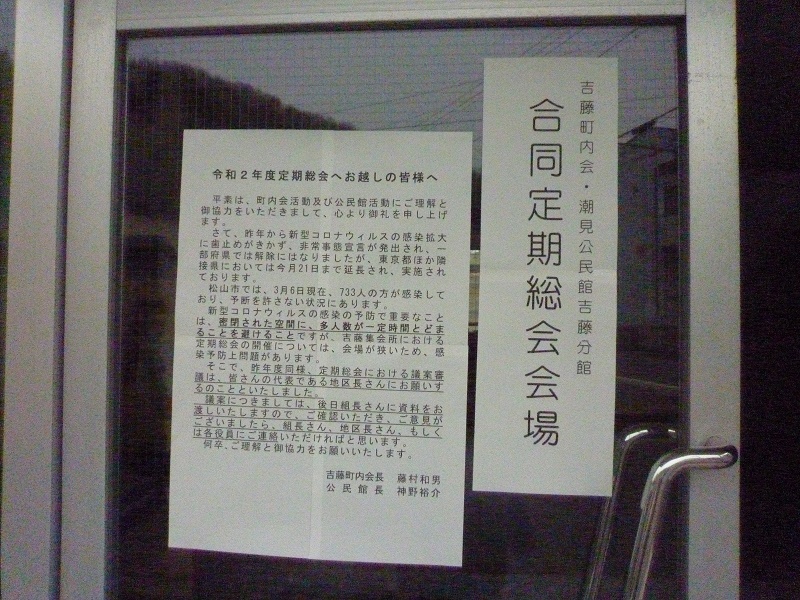 吉藤町内会・潮見公民館吉藤分館
合同定期総会会場
令和2年度定期総会へお越しの皆様へ
平素は、町内会活動及び公民館活動にご理解と
御協力をいただきまして、心より御礼を申し上げ
ます。
さて、昨年から新型コロナウィルスの感染拡大
に歯止めがきかず、非常事態宣言が発出され、一
部府県では解除にはなりましたが、東京都ほか隣
接県においては今月21日まで延長され、実施され
ております。
松山市では、3月6日現在、733人の方が感染して
おり、予断を許さない状況にあります。
新型コロナウィルスの感染の予防で重要なこと
は、密閉された空間に、多人数が一定時間とどま
ることを避けることですが、吉藤集会所における
定期総会の開催については、会場が狭いため、感
染予防上問題があります。
そこで、昨年度同様、定期総会における議案審
議は、皆さんの代表である地区長さんにお願いす
るのことといたしました。
議案につきましては、後日組長さんに資料をお
渡しいたしますので、ご確認いただき、ご意見が
ございましたら、組長さん、地区長さん、もしく
は各役員にご連絡いただければと思います。
何卒、ご理解と御協力をお願いいたします。
吉藤町内会長 藤村和男
公民館長 神野裕介